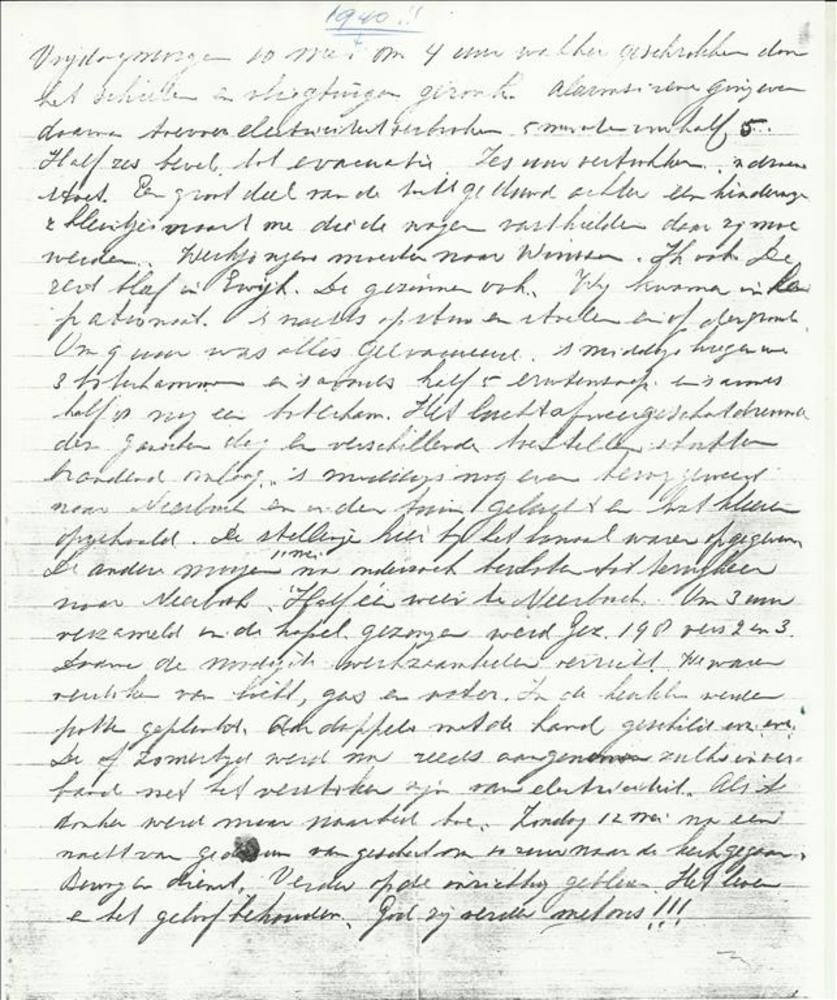 1940!!
Vrijdagmorgen 10 mei om 4 uur wakker geschrokken door
het schieten en vliegtuigen geronk. Alarmsirene ging even
daarna electriciteit verbroken 5 minuten voor half 5.
Half zes bevel tot evacuatie. Zes uur vertrokken
Een groot deel van de achter een kinderwagen
2 kleintjes naast me die de wagen vasthielden daar zij moe
werden. moesten naar Winssen. Ik ook. De
rest bleef in Ewijk. De gezinnen ook. Wij kwamen in het
patronaat. 's nachts op stoelen en of dergroot
Om 9 uur was alles geevacueerd. 's middags kregen we
3 boterhammen en 's avonds half 5 erwtensoep en 's avonds
half nog een boterham. Het luchtafweergeschut dreunde
den ganschen dag en verschillende toestellen stortten
brandend omlaag. 's middags nog even terug geweest
naar Neerbosch en in den tuin en wat kleeren
opgehaald. De stellingen hier bij het kanaal waren opgegeven
De andere morgen 11 mei na onderzoek besloten tot terugkeer
naar Neerbosch. Half één weer te Neerbosch. Om 3 uur
verzameld in de kapel. gezongen werd Gez. 198 vers 2 en 3.
Daarna de noodigste werkzaamheden verricht. We waren
verstoken van licht, gas en water. In de werden
potten geplaatst. Aardappels met de hand geschild enz. enz.
De zomertijd werd nu reeds aangenomen zulks in ver-
band met het verstoken zijn van electriciteit. Als 't
donker werd naar bed toe. Zondag 12 mei na een
nacht van van geschut om 10 uur naar de kerk gegaan.
dienst. Verder op de inrichting gebleven. Het leven
en het geloof behouden. God zij verder met ons!!!